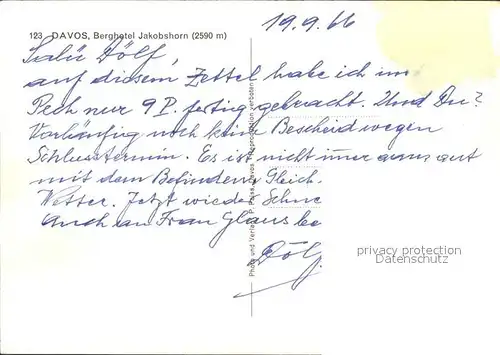 19.9.66
123 DAVOS, Berghotel Jakobshorn (2590 m)
Salü Dölf,
auf diesem Zettel habe ich im
Pech nur 9 P. fertig gebracht. Und Du?
Vorläufig noch keine Bescheid wegen
Schlusstermin. Es ist nicht immer
mit dem Befinden. Gleich.
Wetter. Jetzt wieder Schne
Auch an Frau Glaus be
Dölf
Photo und Verlag
privacy protection
Datenschutz